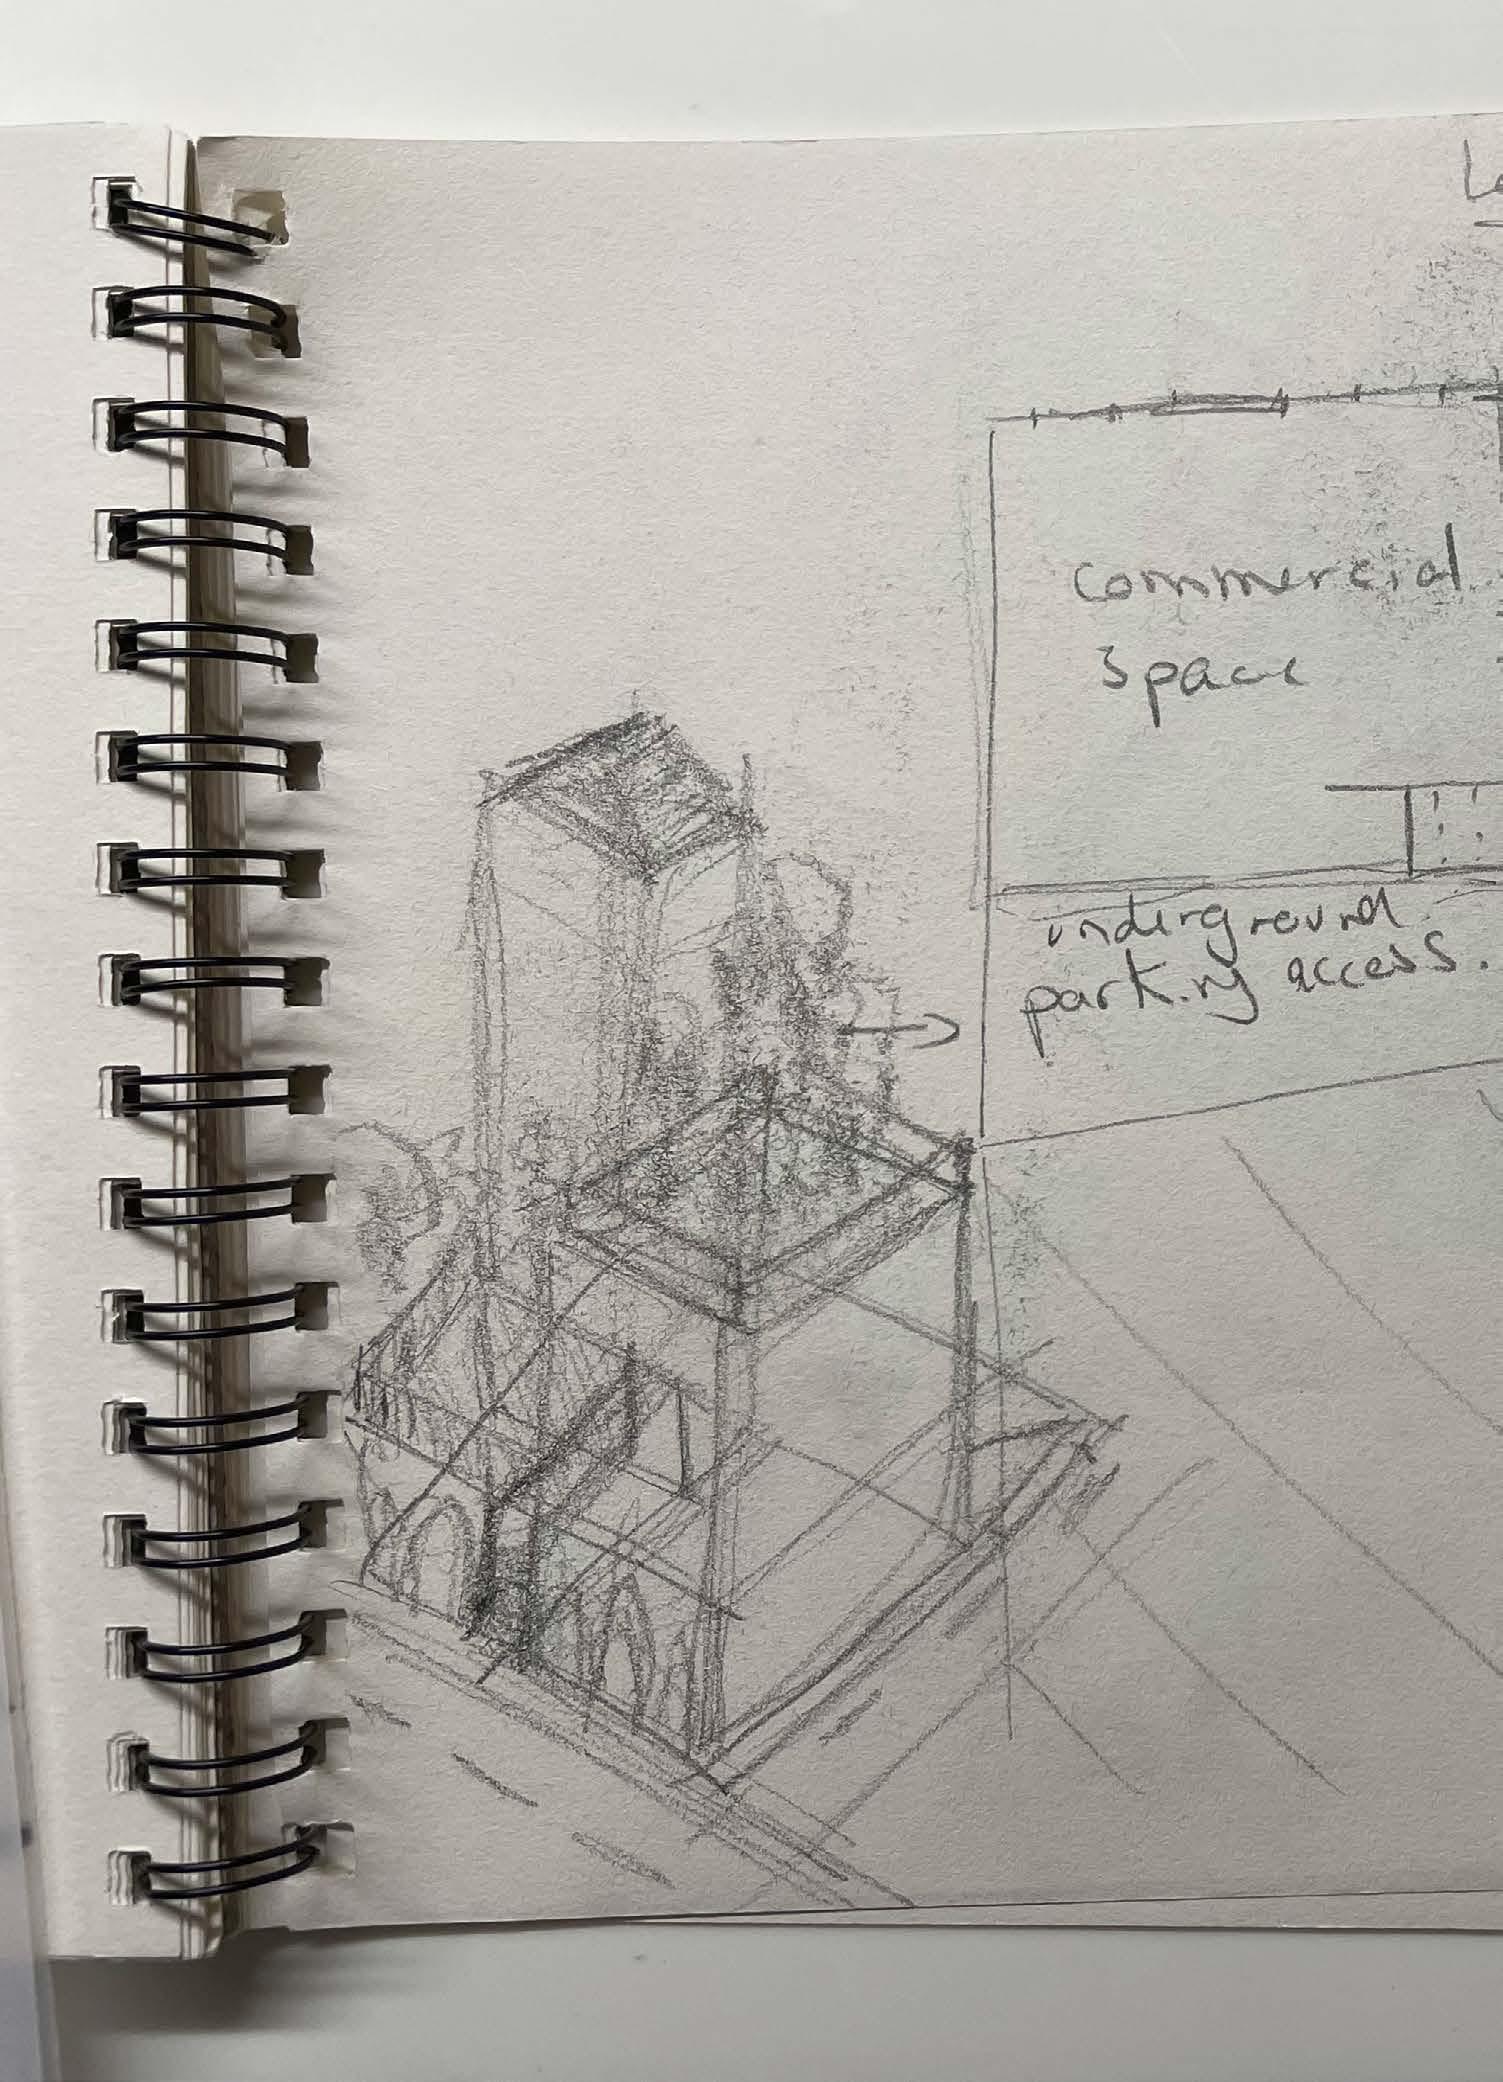 commercial
space
underground
parking access.